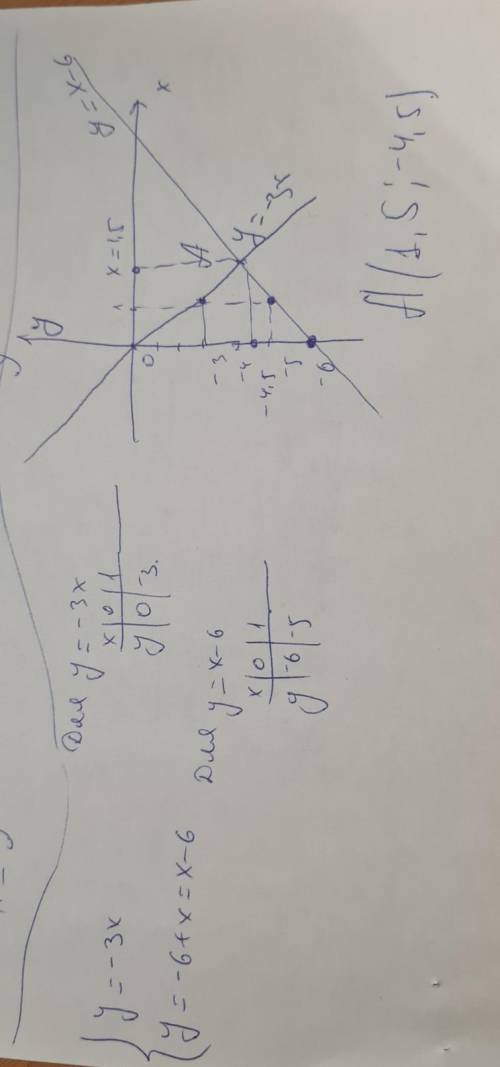 { y = -3x
y = -6+x = x-6
Для y = -3x
x | 0 | 1
y | 0 | -3
Для y = x-6
x | 0 | 1
y | -6 | -5
y
x
y = x-6
x = 1,5
1
0
A
y = -3x
-3
-4
-4,5
-5
-6
A(1,5; -4,5)